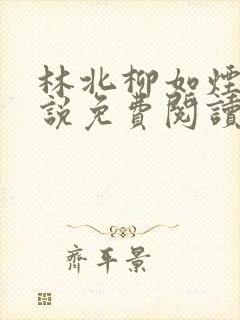 林北柳如煙
說免費閱讀
齊平景